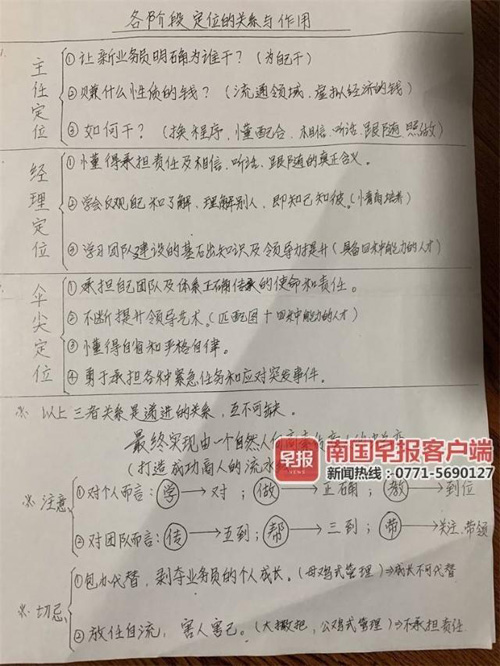 各阶段定位的关系与作用
主任定位
①让新业务员明确为谁干？（为自己干）
②赚什么性质的钱？（流通领域、虚拟经济的钱）
③如何干？（按程序、懂配合、相信、听话、跟随、照做）
经理定位
①懂得承担责任及相信、听话、跟随的真正含义。
②学会反观自己和了解、理解别人，即知己知彼。（情商培养）
③学习团队建设的基础知识及领导力提升（具备四来中能力的人才）
伞尖定位
①承担自己团队及体系正确传承的使命和责任。
②不断提升领导艺术。（匹配团十四来中能力的人才）
③懂得自省和严格自律。
④勇于承担各种紧急任务和应对突发事件。
※ 以上三者关系是递进的关系，互不可缺。
最终实现由一个自然人
（打造成功商人的流水
早报 南国早报客户端
新闻热线：0771-5690127
※ 注意
①对个人而言：学→对；做→正确；教→到位
②对团队而言：传→互到；帮→三到；带→关注、带领
※ 切忌
①包办代替，剥夺业务员的个人成长。（母鸡式管理）⇒成长不可代替
②放任自流，害人害己。（大撒把，公鸡式管理）⇒不承担责任